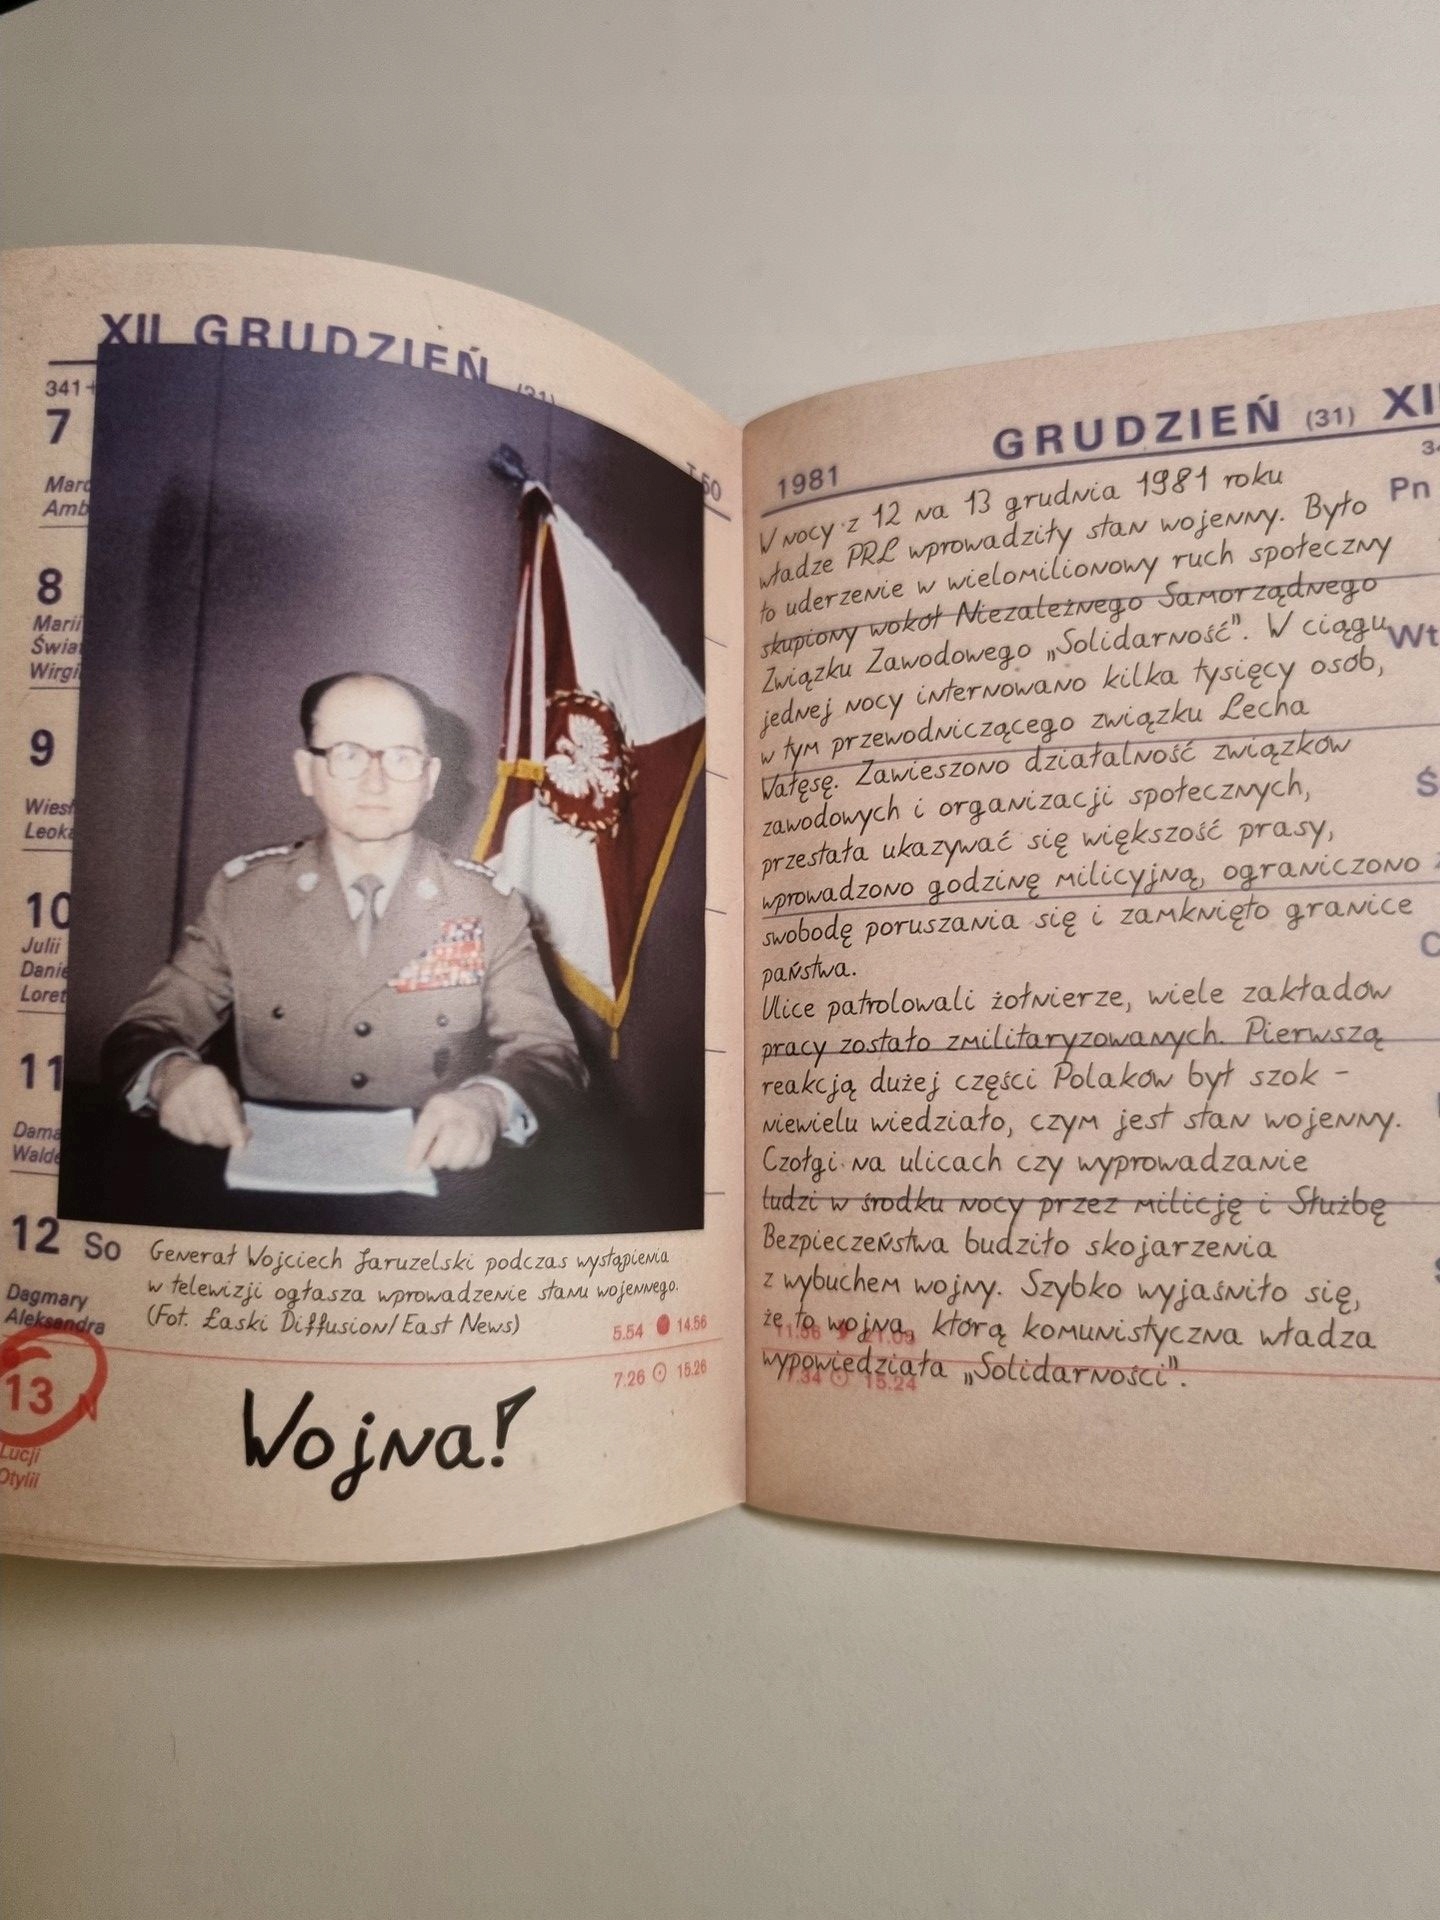 XII GRUDZIEŃ (31)
341+
T.50
7
8
Marii
9
10
Julii
11
12 So
Dagmary
Aleksandra
13 N
Lucji
Otylii
Generał Wojciech Jaruzelski podczas wystąpienia
w telewizji ogłasza wprowadzenie stanu wojennego.
(Fot. Łaski Diffusion/East News)
5.54 14.56
7.26 15.26
Wojna!
1981 GRUDZIEŃ (31)
W nocy z 12 na 13 grudnia 1981 roku
władze PRL wprowadziły stan wojenny. Było
to uderzenie w wielomilionowy ruch społeczny
skupiony wokół Niezależnego Samorządnego
Związku Zawodowego „Solidarność”. W ciągu
jednej nocy internowano kilka tysięcy osób,
w tym przewodniczącego związku Lecha
Wałęsę. Zawieszono działalność związków
zawodowych i organizacji społecznych,
przestała ukazywać się większość prasy,
wprowadzono godzinę milicyjną, ograniczono
swobodę poruszania się i zamknięto granice
państwa.
Ulice patrolowali żołnierze, wiele zakładów
pracy zostało zmilitaryzowanych. Pierwszą
reakcją dużej części Polaków był szok –
niewielu wiedziało, czym jest stan wojenny.
Czołgi na ulicach czy wyprowadzanie
ludzi w środku nocy przez milicję i Służbę
Bezpieczeństwa budziło skojarzenia
z wybuchem wojny. Szybko wyjaśniło się,
że to wojna, którą komunistyczna władza
wypowiedziała „Solidarności”.
7.34 15.24
Pn
Wt